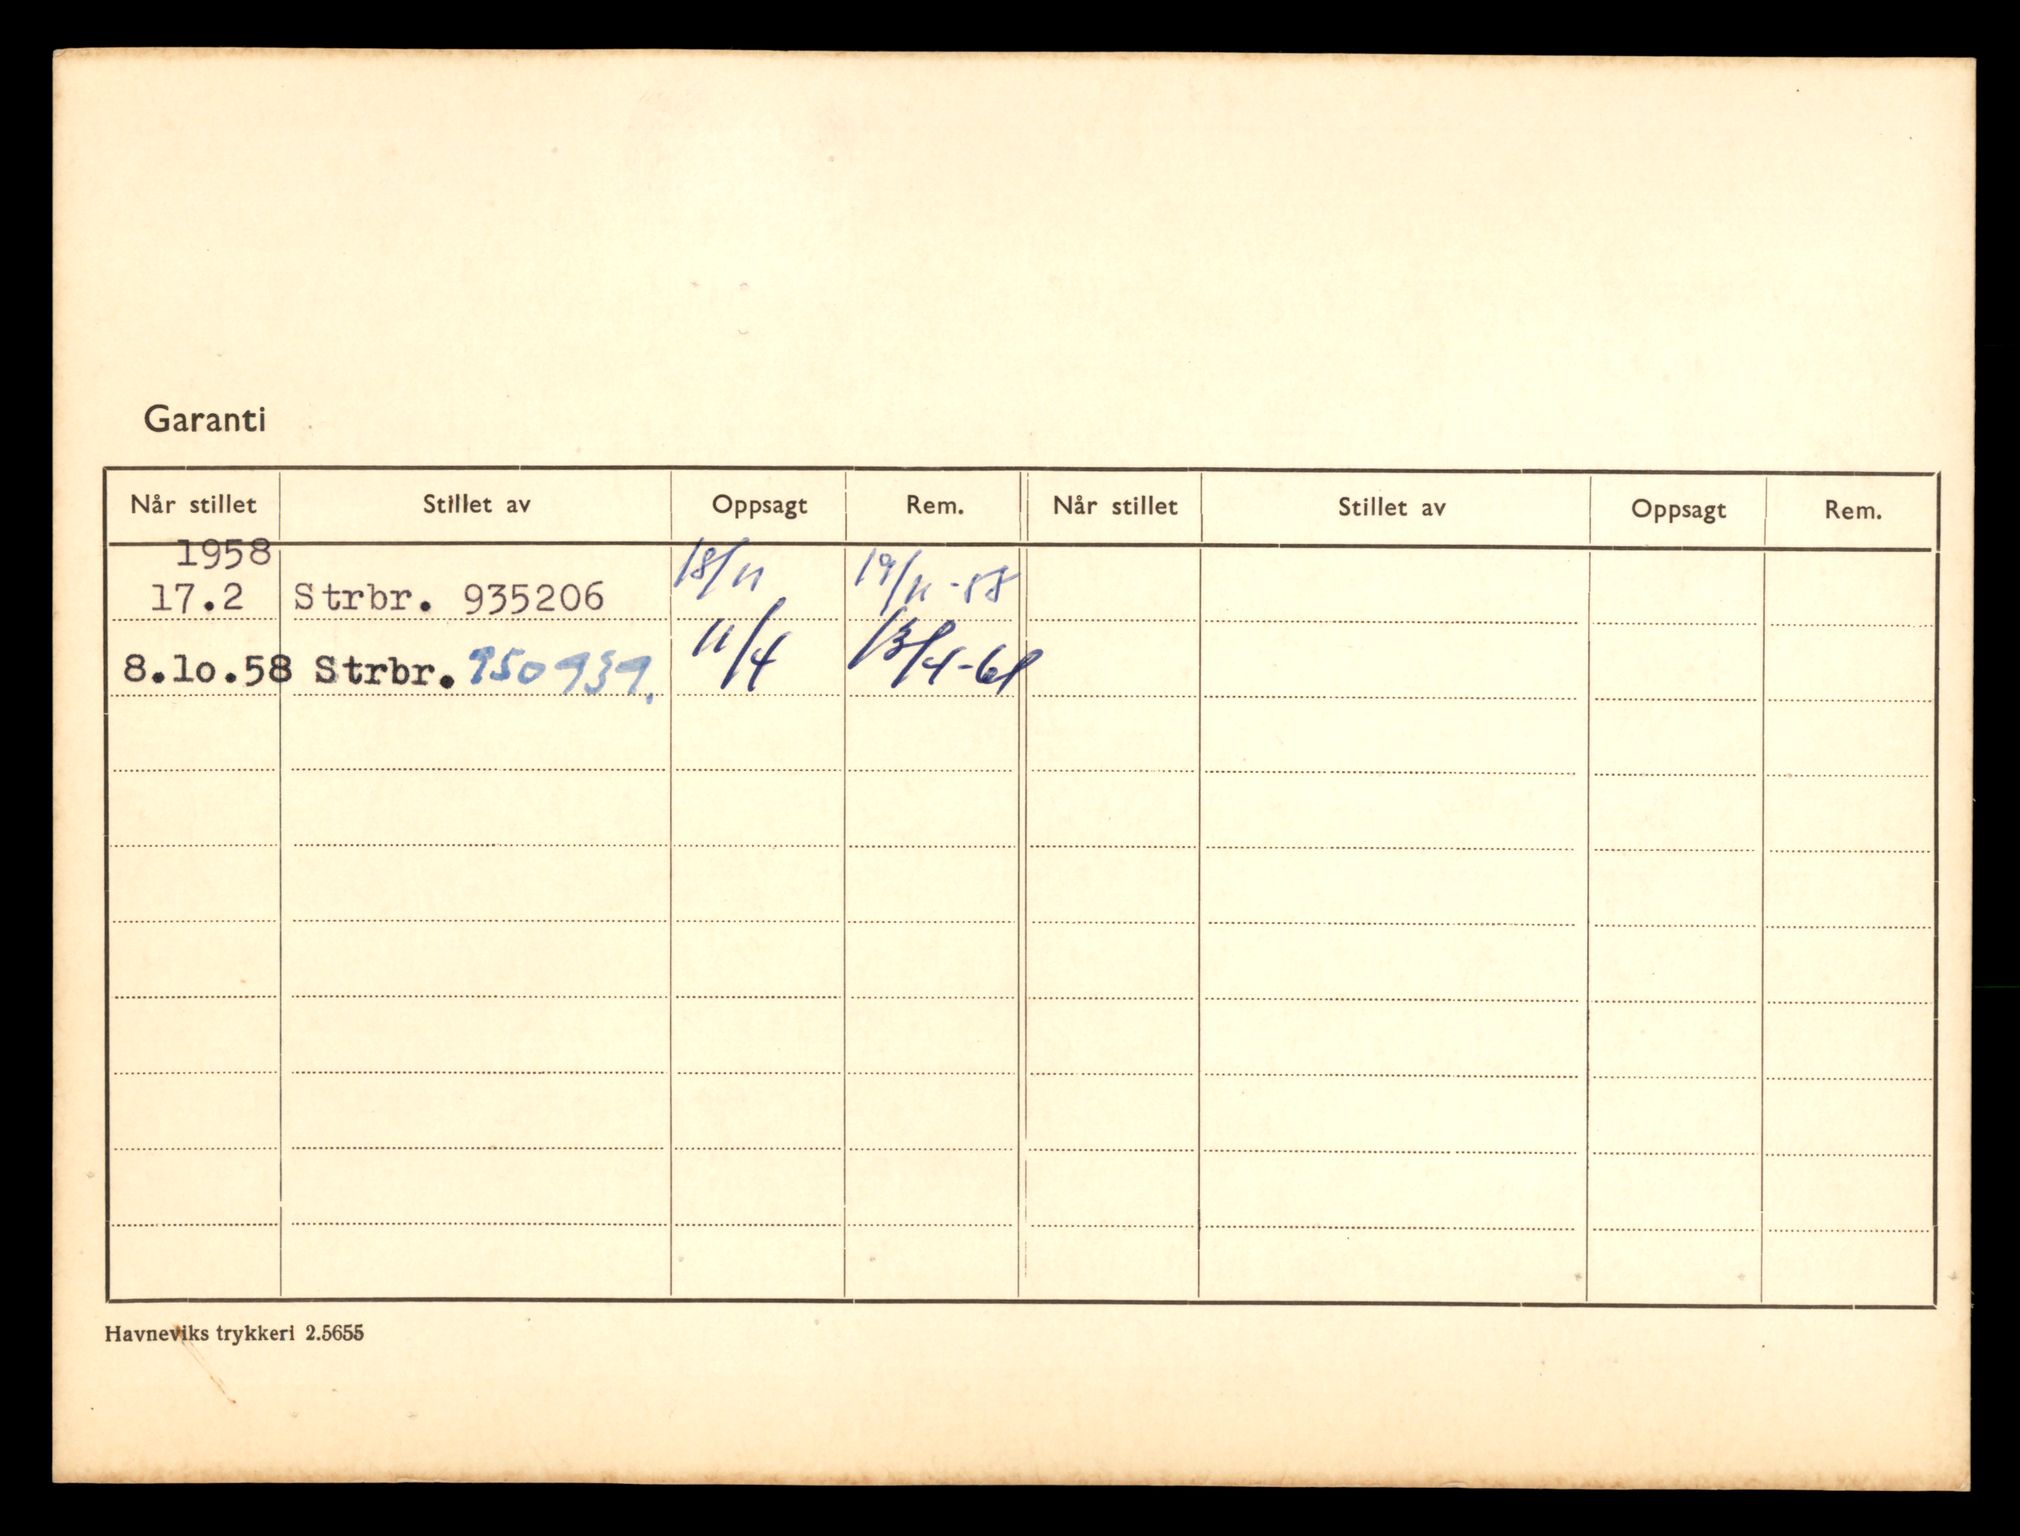 Garanti
Når stillet Stillet av Oppsagt Rem. Når stillet Stillet av Oppsagt Rem.
1958
17.2 Strbr. 935206 18/11 19/11-58
8.10.58 Strbr. 950939. 11/4 13/4-61
Havneviks trykkeri 2.5655